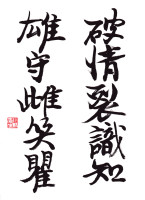 破情裂識知
雄守雌笑瞿